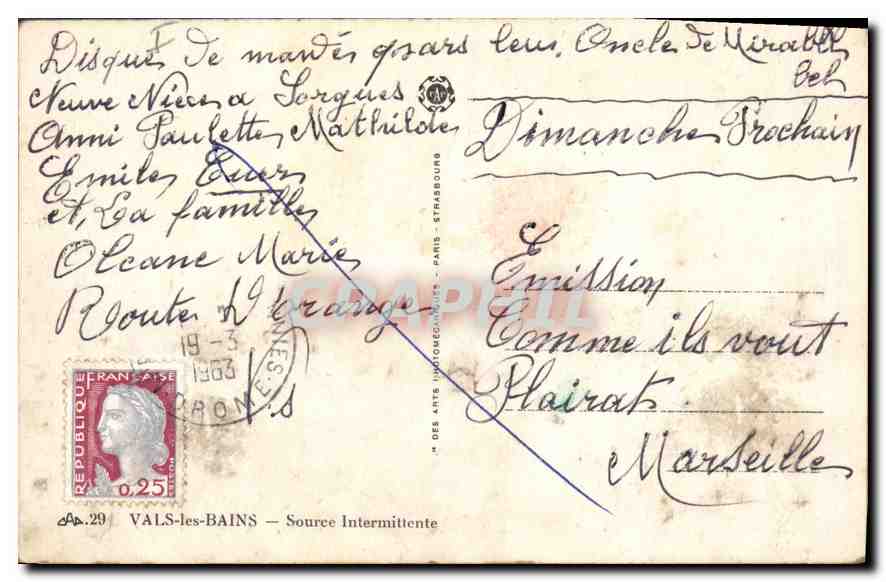 Disque de mandés psars leur, Oncle de Mirabel
bel
Neuve Nièces a Sorgues
Anni Paulette, Mathilde
Emiles
et, La famille
Olcane Marie
Route D'orange
V.s
Dimanche Prochain
Emission
Comme ils vout
Plairat
Marseille
CARTAPHIL
19-3
1963
DRÔME
REPUBLIQUE FRANÇAISE
0,25
29 VALS-les-BAINS — Source Intermittente
DES ARTS PHOTOMÉCANIQUES - PARIS - STRASBOURG